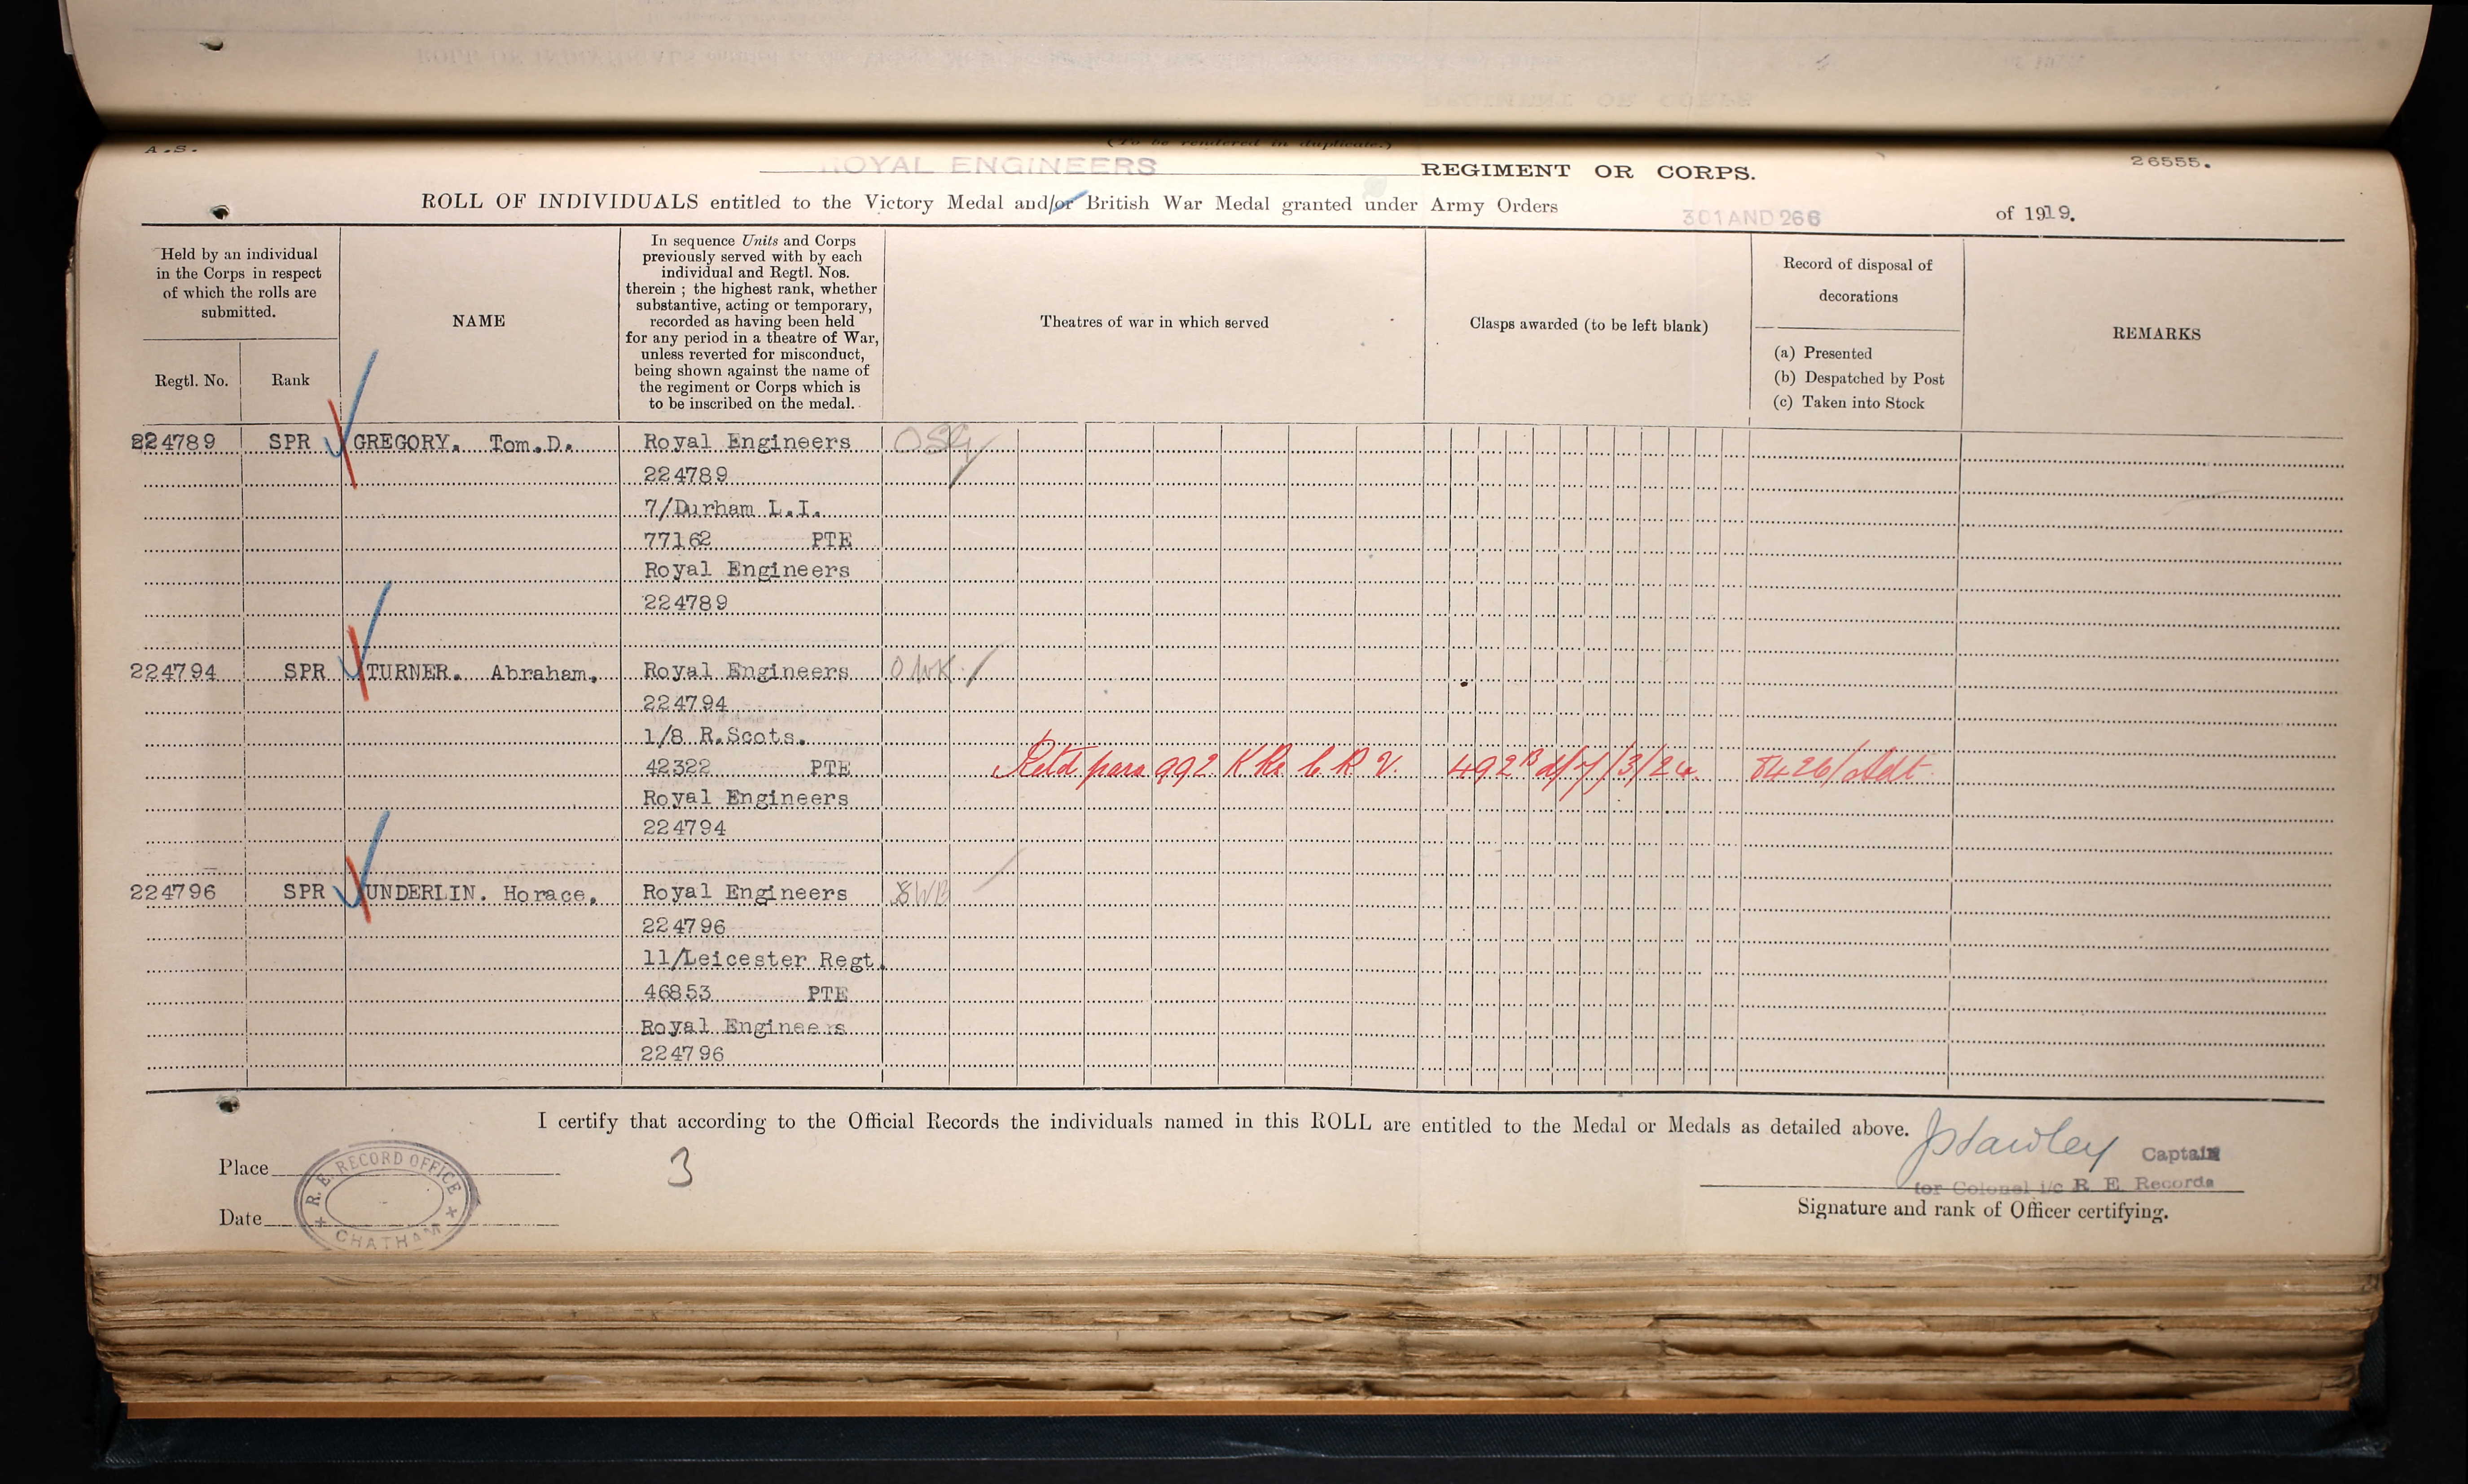 A.S.
(To be rendered in duplicate.)
ROYAL ENGINEERS REGIMENT OR CORPS. 26555.
ROLL OF INDIVIDUALS entitled to the Victory Medal and/or British War Medal granted under Army Orders 301 AND 266 of 1919.
Held by an individual
in the Corps in respect
of which the rolls are
submitted.
Regtl. No. Rank
NAME
In sequence Units and Corps
previously served with by each
individual and Regtl. Nos.
therein ; the highest rank, whether
substantive, acting or temporary,
recorded as having been held
for any period in a theatre of War,
unless reverted for misconduct,
being shown against the name of
the regiment or Corps which is
to be inscribed on the medal.
Theatres of war in which served
Clasps awarded (to be left blank)
Record of disposal of
decorations
(a) Presented
(b) Despatched by Post
(c) Taken into Stock
REMARKS
224789 SPR GREGORY. Tom.D. Royal Engineers
224789
7/Durham L.I.
77162 PTE
Royal Engineers
224789
224794 SPR TURNER. Abraham. Royal Engineers
224794
1/8 R.Scots.
42322 PTE Retd para 992 K Rs 8426/Adt
Royal Engineers
224794
224796 SPR UNDERLIN. Horace. Royal Engineers
224796
11/Leicester Regt.
46853 PTE
Royal Engineers
224796
I certify that according to the Official Records the individuals named in this ROLL are entitled to the Medal or Medals as detailed above.
Captain
for Colonel i/c R E Records
Signature and rank of Officer certifying.
Place
Date
R. E. RECORD OFFICE
CHATHAM
3